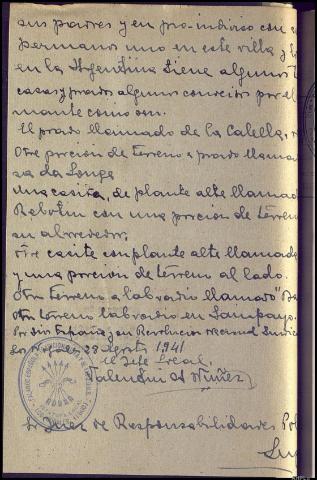 sus padres y en pro-indiviso con
hermanos uno en este villa y
en la Argentina tiene algunos
casas y prados algunos conocidos por el
mante como son.
El prado llamado de la Calella,
Otre porcion de terreno a prado llama
sa da Longa
Una casita, de plante alte llamad
Rebolin con una porcion de terren
su alrrededor,
Otre casite con plante alte llamada
y una porcion de terreno al lado.
Otro terreno a labradio llamado "
Otro terreno labradio en Sampayo.
Por Dios España y su Revolucion Nacional Sindica
28 Agosto 1941
El Jefe Local,
Valentin A Nuñez
Sr Juez de Responsabilidades Pol
Lug